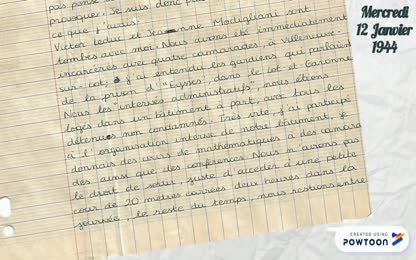 pas pensé
presque. Je suis donc pa
ce que j'avais
Victor Leduc et Jeanne Modigliani sont
tombés avec moi. Nous avons été immédiatement
incarcérés avec quatre camarades, à Villeneuve-
sur-Lot, j'ai entendu les gardiens qui parlaient
de la prison d'"Eysses", dans le Lot et Garonne
Nous les "internés administratifs", nous étions
logés dans un bâtiment à part, avec tous les
détenus non condamnés. Très vite, j'ai participé
à l'organisation interne de notre bâtiment, je
donnais des cours de mathématiques à des camara
des ainsi que des conférences. Nous n'avions pas
le droit de sortir, juste d'accéder à une petite
cour de 20 mètres carrés deux heures dans la
journée, le reste du temps, nous restions entre
Mercredi
12 Janvier
1944
CREATED USING
POWTOON